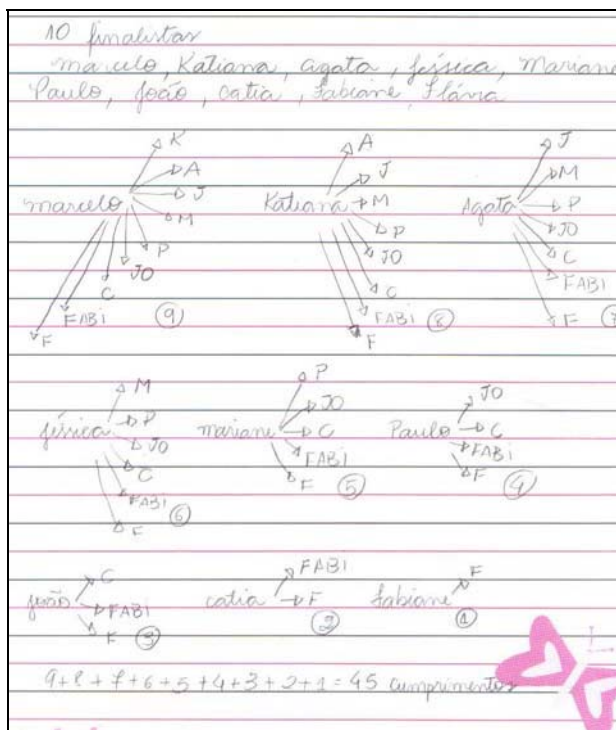 10 finalistas
Marcelo, Katiana, Agata, Jéssica, Mariane
Paulo, João, Catia, Fabiane, Flávia
K
A
J
marcelo
M
P
JO
C
FABi
F
9
A
J
Katiana
M
P
JO
C
FABi
F
8
J
M
Agata
P
JO
C
FABi
F
7
M
Jéssica
P
JO
C
FABi
F
6
P
JO
mariane
C
FABi
F
5
JO
Paulo
C
FABi
F
4
C
João
FABi
F
3
FABi
catia
F
2
F
fabiane
1
9+8+7+6+5+4+3+2+1=45 cumprimentos